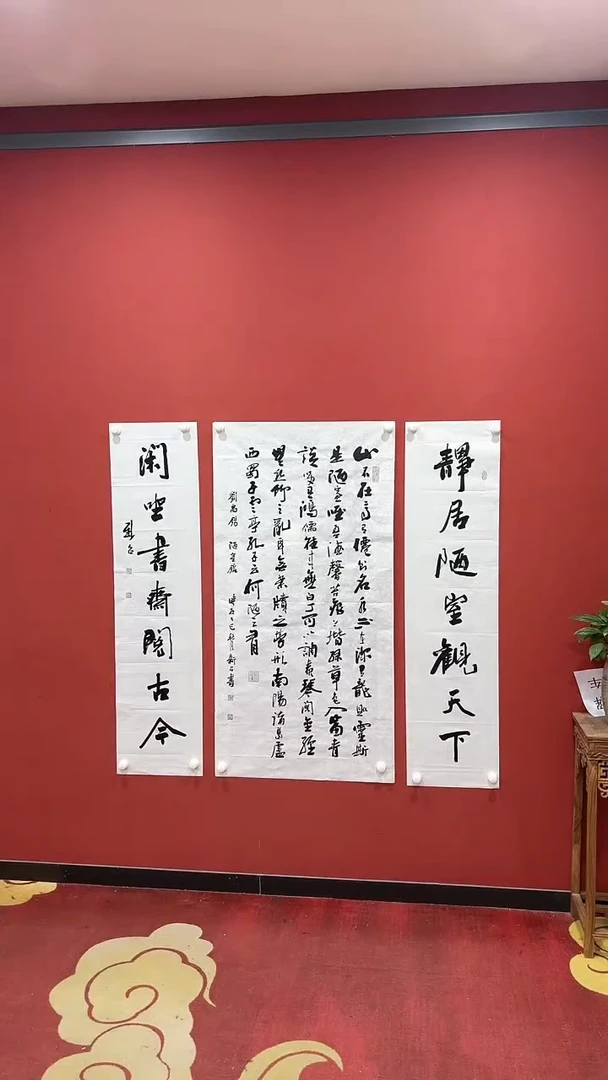 靜居陋室觀天下
山不在高有僊則名水不在深有龍則靈斯
是陋室唯吾德馨苔痕上階綠草色入簾青
談笑有鴻儒往來無白丁可以調素琴閱金經
無絲竹之亂耳無案牘之勞形南陽諸葛廬
西蜀子雲亭孔子云何陋之有
劉禹錫 陋室銘 時在乙巳秋月 書
閑坐書齋閱古今